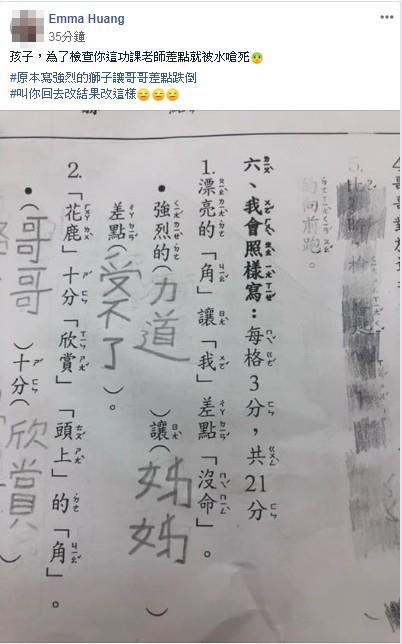 Emma Huang
35分鐘
孩子，為了檢查你這功課老師差點就被水嗆死
#原本寫強烈的獅子讓哥哥差點跌倒
#叫你回去改結果改這樣
的向前跑。
六、我會照樣寫：每格3分，共21分
1.漂亮的「角」讓「我」差點「沒命」。
•強烈的（力道）讓（姊姊）
差點（受不了）。
2.「花鹿」十分「欣賞」「頭上」的「角」。
•（哥哥）十分（欣賞）